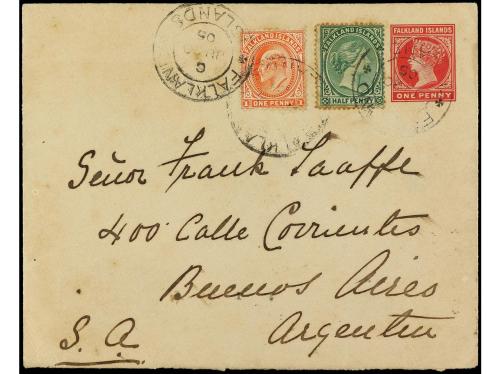 FALKLAND ISLANDS
05
FALKLAND ISLANDS
1 ONE PENNY 1
FALKLAND ISLANDS
HALF PENNY
FALKLAND ISLANDS
ONE PENNY
Señor Frank Laaffe
400 Calle Corrientes
Buenos Aires
S. A. Argentin